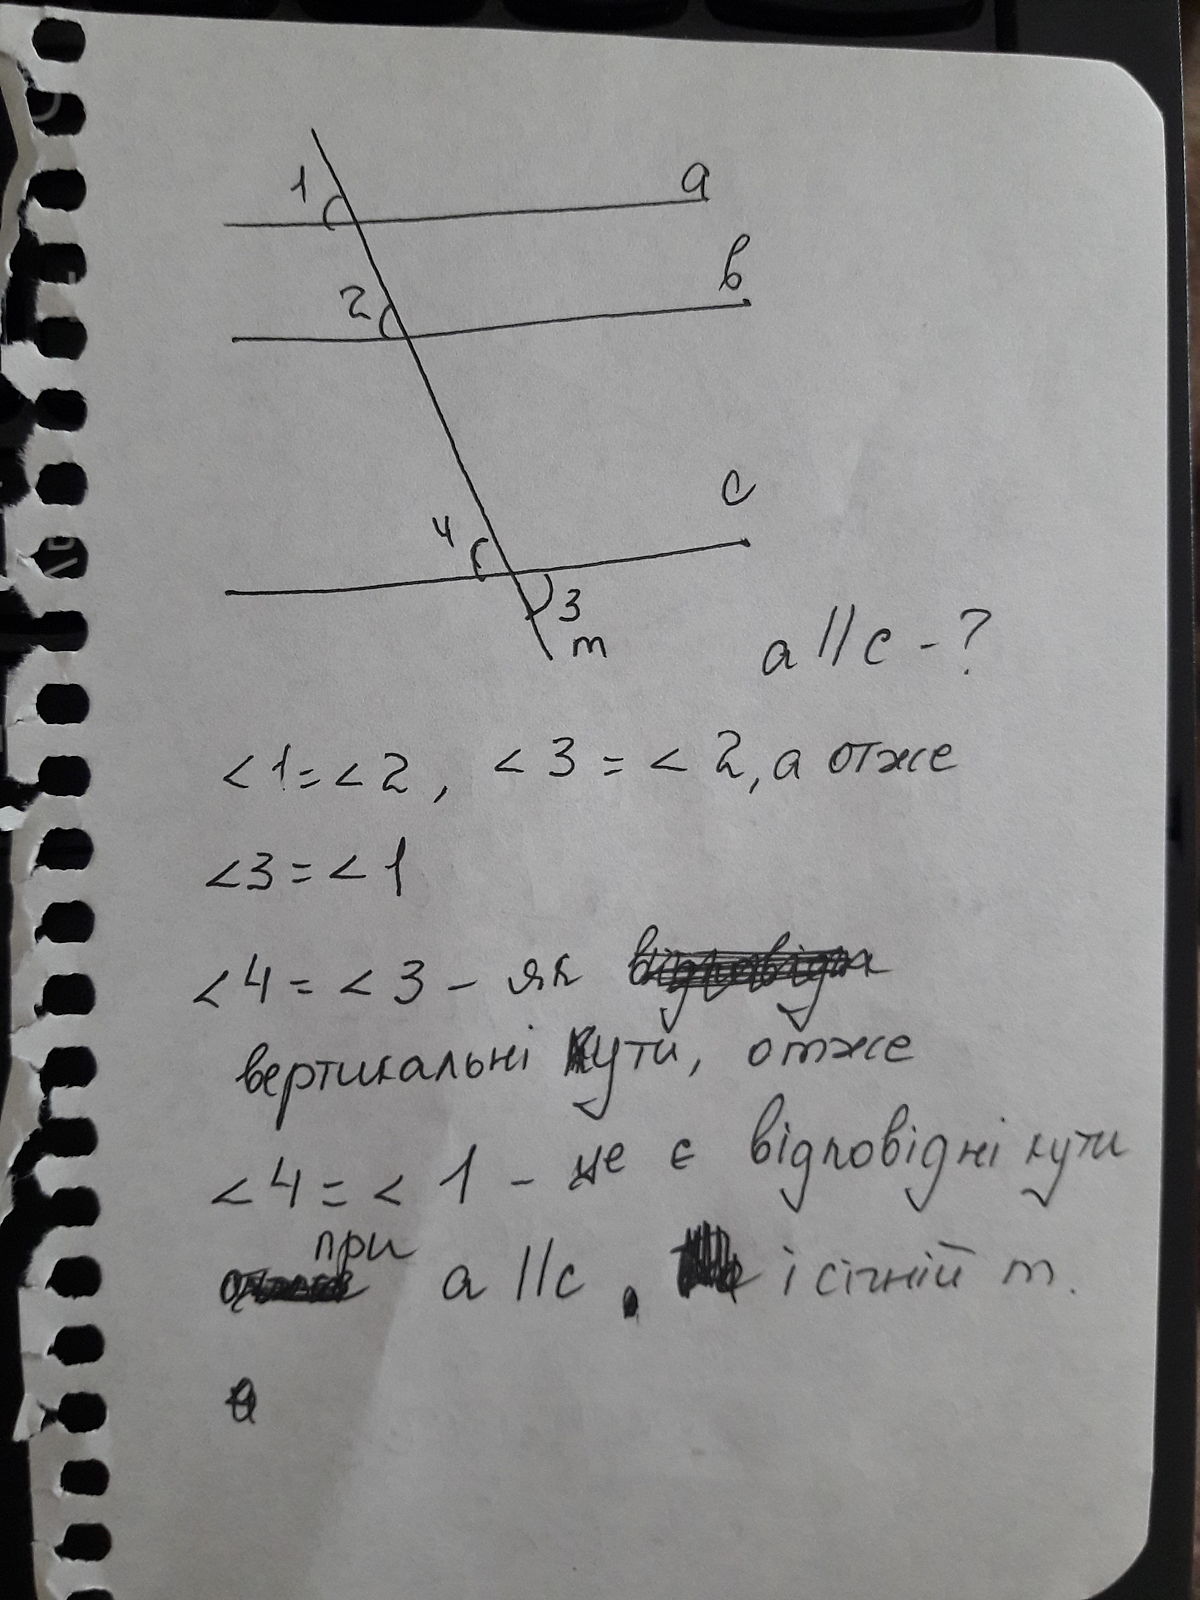 1
a
2
в
4
c
3
m
a || c - ?
<1 = <2, <3 = <2, а отже
<3 = <1
<4 = <3 - як
вертикальні кути, отже
<4 = <1 - це є відповідні кути
при a || c, і січній m.